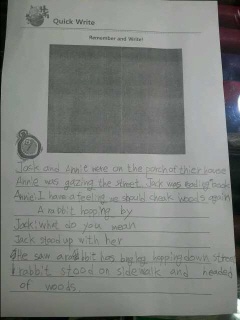 Quick Write
Remember and Write!
Jack and Annie were on the porch of thier house
Annie was gazing the street. Jack was reading book
Annie: I have a feeling we should cheak woods again
A rabbit hopping by
Jack: what do you mean
Jack stood up with her
He saw a rabbit has begleg hopping down street
rabbit stood on sidewolk and headed
of woods